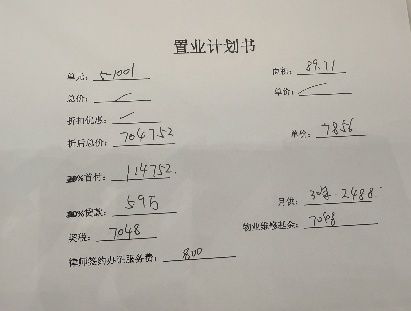 置业计划书
单元: 5-1001 面积: 89.71
总价: 单价:
折扣优惠:
折后总价: 704752 单价: 7856
首付: 114752.
贷款: 59万 月供: 30年 2488
契税: 7048 物业维修基金: 7048
律师签约办证服务费: 800